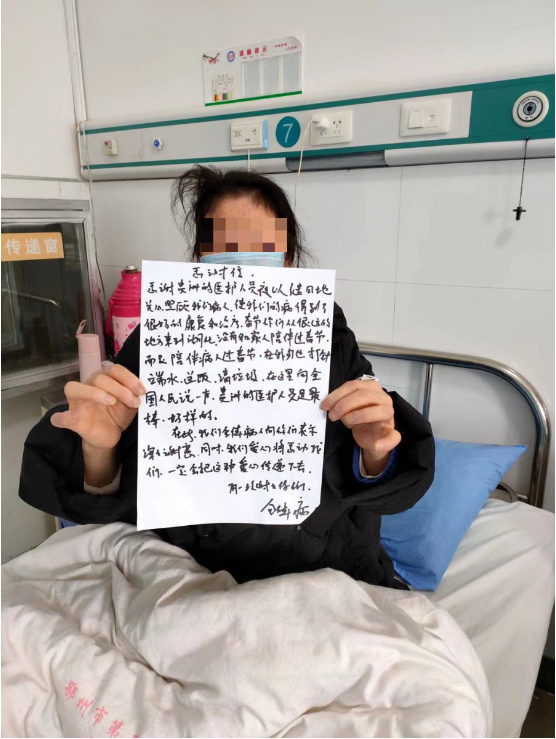 温馨提示
7
传递窗
感谢信.
感谢贵洲的医护人员夜以继日地
关心.照顾我们病人,使我们的病得到了
很好的康复和治疗.春节你们从很远的
地方来到 没有和家人陪伴过春节,
而是陪伴病人过春节,在 打针
端水,送饭,清垃圾.在这里向全
国人民说一声,贵洲的医护人员是最
棒.好样的.
在此,我们全体病人向你们表示
深深谢意,同时,我们爱心将感动我
们,一定会把这种爱心传递下去.
你们
全体病
鄂州市第